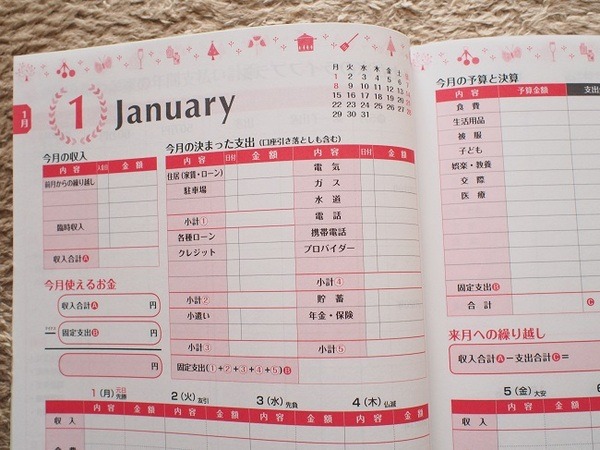 1月
1 January
月 火 水 木 金 土 日
1 2 3 4 5 6 7
8 9 10 11 12 13 14
15 16 17 18 19 20 21
22 23 24 25 26 27 28
29 30 31
今月の収入
内容 入金日 金額
前月からの繰り越し
臨時収入
収入合計A
今月使えるお金
収入合計A 円
マイナス
固定支出B 円
円
今月の決まった支出(口座引き落としも含む)
内容 日付 金額 内容 日付 金額
住居(家賃・ローン) 電気
駐車場 ガス
水道
小計① 電話
各種ローン 携帯電話
クレジット プロバイダー
小計④
小計② 貯蓄
小遣い 年金・保険
小計③ 小計⑤
固定支出(①+②+③+④+⑤)B
今月の予算と決算
内容 予算金額 支出
食費
生活用品
被服
子ども
娯楽・教養
交際
医療
固定支出B
合計 C
来月への繰り越し
収入合計A−支出合計C=
1(月)元日 先勝 2(火)友引 3(水)先負 4(木)仏滅 5(金)大安
内容 金額 内容 金額 内容 金額 内容 金額 内容 金額
収入 収入